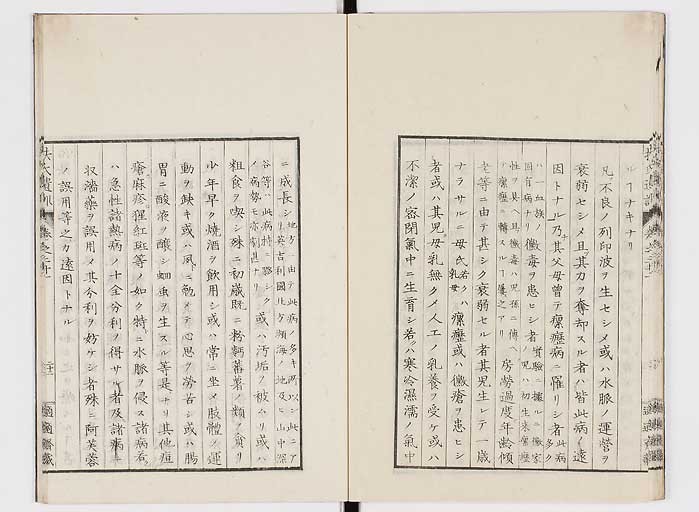 ルヿナキナリ
凡不良ノ列印波ヲ生セシメ或ハ水脈ノ運營ヲ
衰弱セシメ且其力ヲ奪却スル者ハ皆此病ノ遠
因トナル乃其父母曾テ瘰癧病ニ罹リシ者此病多ク
ハ一血族ノ固有病ナリ黴毒ヲ患ヒシ者實驗ニ據ルニ黴家ノ児ハ初生來瘰癧
性ヲ具ヘ且黴毒ハ児孫ニ傳ヘテ瘰癧ニ轉スルヿ屢之アリ房勞過度年齡傾
老等ニ由テ甚シク衰弱セル者其児生レテ一歳
ナラサルニ母氏若クハ乳母瘰癧或ハ黴瘡ヲ患ヒシ
者或ハ其児母乳無クメ人工ノ乳養ヲ受ケ或ハ
不潔ノ窖閉氣中ニ生育シ若クハ寒冷濕濡ノ氣中
ニ成長シ地方ニ由テ此病ノ多キ所以ハ此ニアリ英吉利國此方頻海ノ地及ヒ山中深
谷等ハ此病特ニ夥シク病勢モ亦劇甚ナリ或ハ汚垢ヲ被ムリ或ハ
粗食ヲ喫シ殊ニ初歳既ニ粉麪蕃薯ノ類ヲ食リ
少年早ク燒酒ヲ飲用シ或ハ常ニ坐メ肢體ノ運
動ヲ缺キ或ハ夙ニ勉メテ心思ヲ勞苦シ或ハ腸
胃ニ酸液ヲ釀シ蛔虫ヲ生スル等是ナリ其他痘
瘡麻疹猩紅斑等ノ如ク特ニ水脈ヲ侵ス諸病若ク
ハ急性諸熱病ノ十全分利ヲ得サル者及諸病ニ
収濇藥ヲ誤用メ其分利ヲ妨ケシ者殊ニ阿芙蓉
ノ誤用等之カ遠因トナル